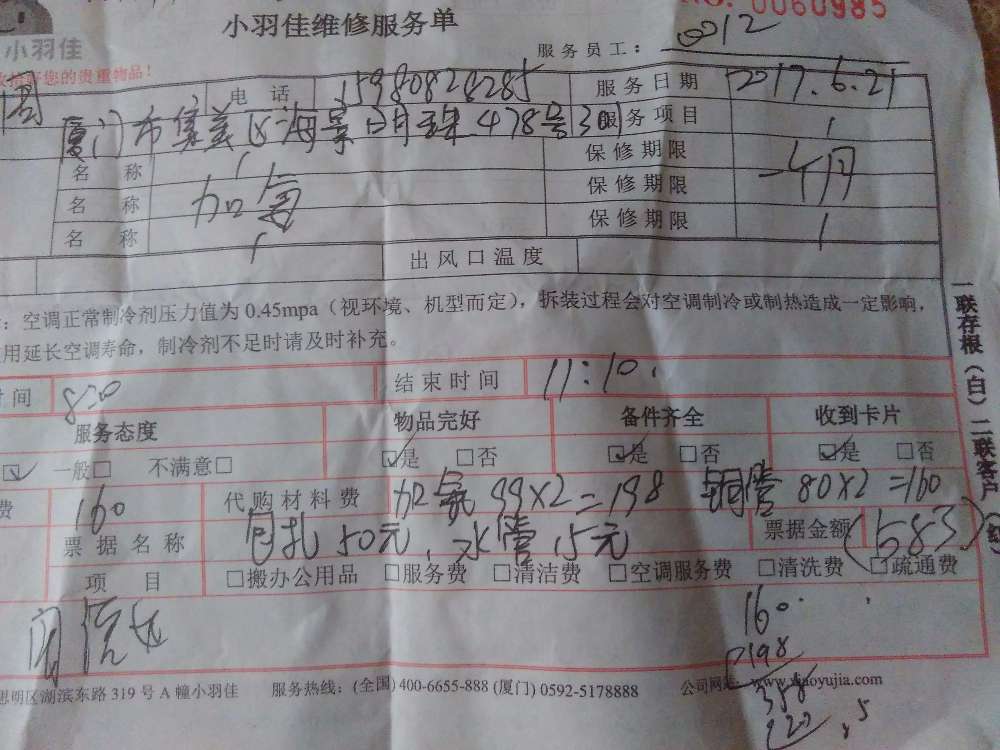 NO. 0060985
小羽佳维修服务单
小羽佳
您的贵重物品!
服务员工: 0012
电话 15980828285 服务日期 2017.6.21
厦门市集美区海景明珠478号301 服务项目
名称 保修期限
名称 加氟 保修期限 一个月
名称 保修期限
出风口温度
: 空调正常制冷剂压力值为 0.45mpa (视环境、机型而定), 拆装过程会对空调制冷或制热造成一定影响,
用延长空调寿命, 制冷剂不足时请及时补充。
时间 8:30 结束时间 11:10.
服务态度 物品完好 备件齐全 收到卡片
☑ 一般□ 不满意□ ☑是 □否 ☑是 □否 ☑是 □否
费 160 代购材料费 加氟 99×2=198 铜管 80×2=160
票据名称 50元, 水管 15元 票据金额 (583)
项目 □搬办公用品 □服务费 □清洁费 □空调服务费 □清洗费 □疏通费
160
198
358
220.5
思明区湖滨东路 319 号 A 幢小羽佳 服务热线: (全国) 400-6655-888 (厦门) 0592-5178888 公司网站: www.xiaoyujia.com
一联存根(白)二联客户(红)